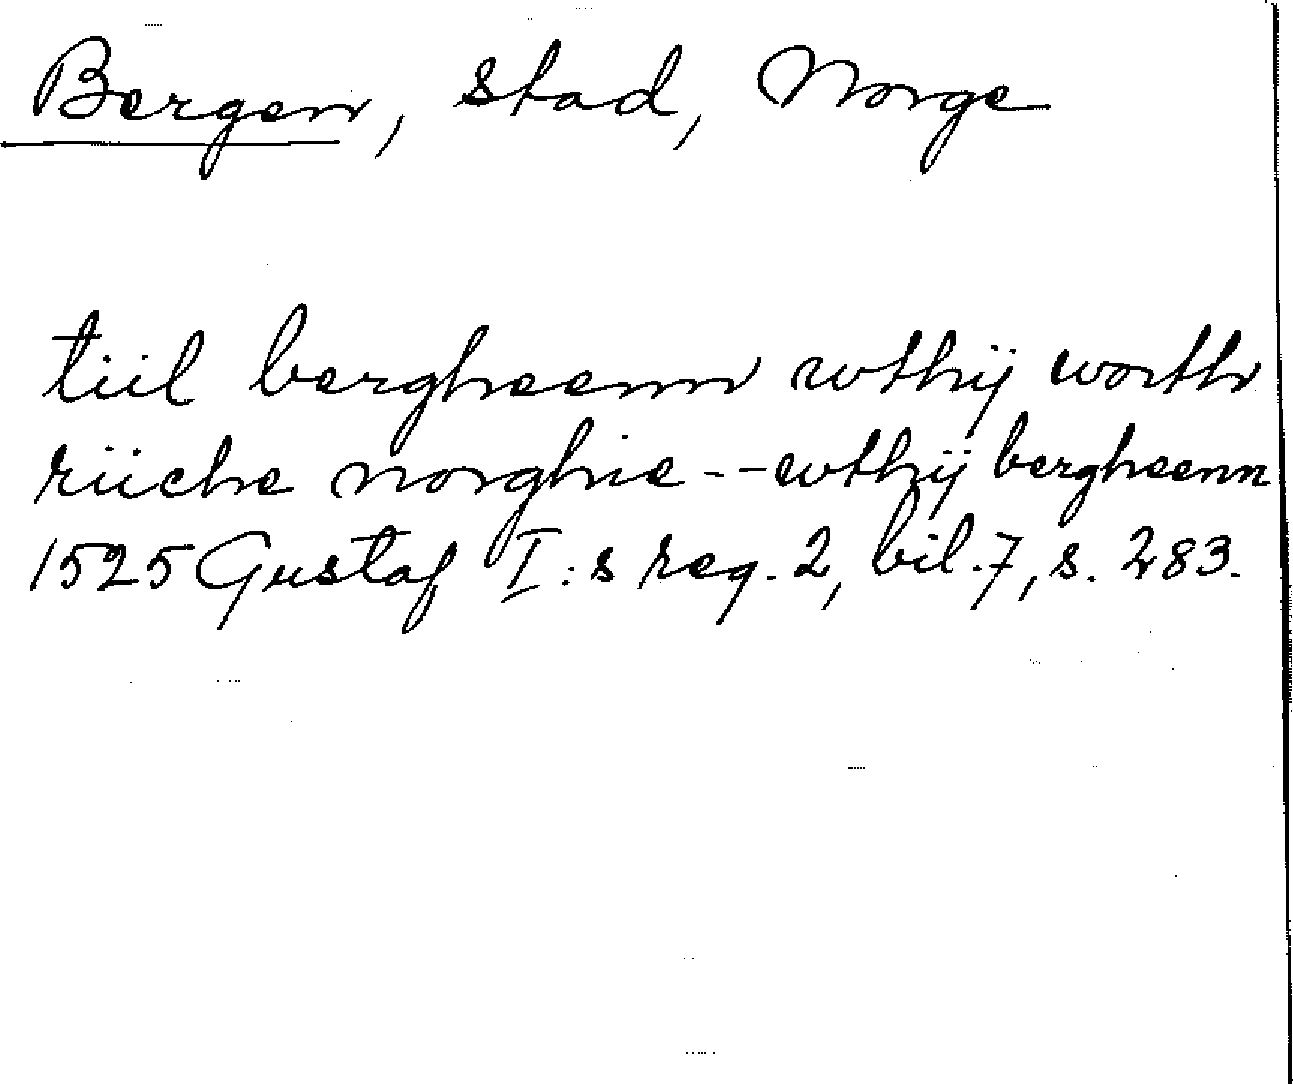 Bergen, stad, Norge
tiil bergheenn wthij worth
riiche norghie -- wthij bergheenn
1525 Gustaf I:s reg. 2, bil. 7, s. 283.